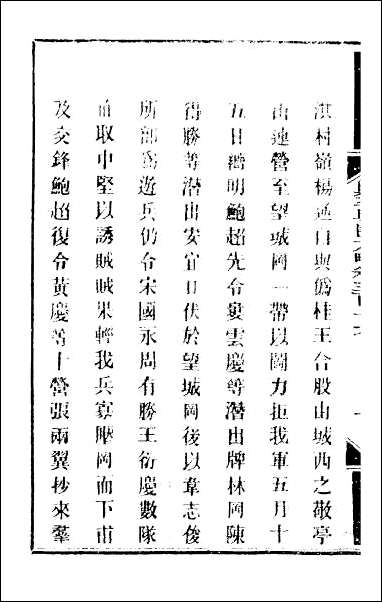 淇村嶺楊逆自與僞桂王合股由城西之敬亭
山連營至望城岡一帶以圖力拒我軍五月十
五日黎明鮑超先令婁雲慶等潛出牌林岡陳
得勝等潛出安宜日伏於望城岡後以韋志俊
所部爲遊兵仍令宋國永周有勝王衍慶數隊
直取中堅以誘賊賊果輕我兵寡壓岡而下甫
及交鋒鮑超復令黃慶等十營張兩翼抄來羣